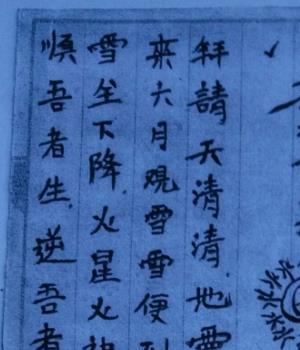 拜請天清清地靈
來六月現雪雪便
雪坐下降火星火
順吾者生逆吾者